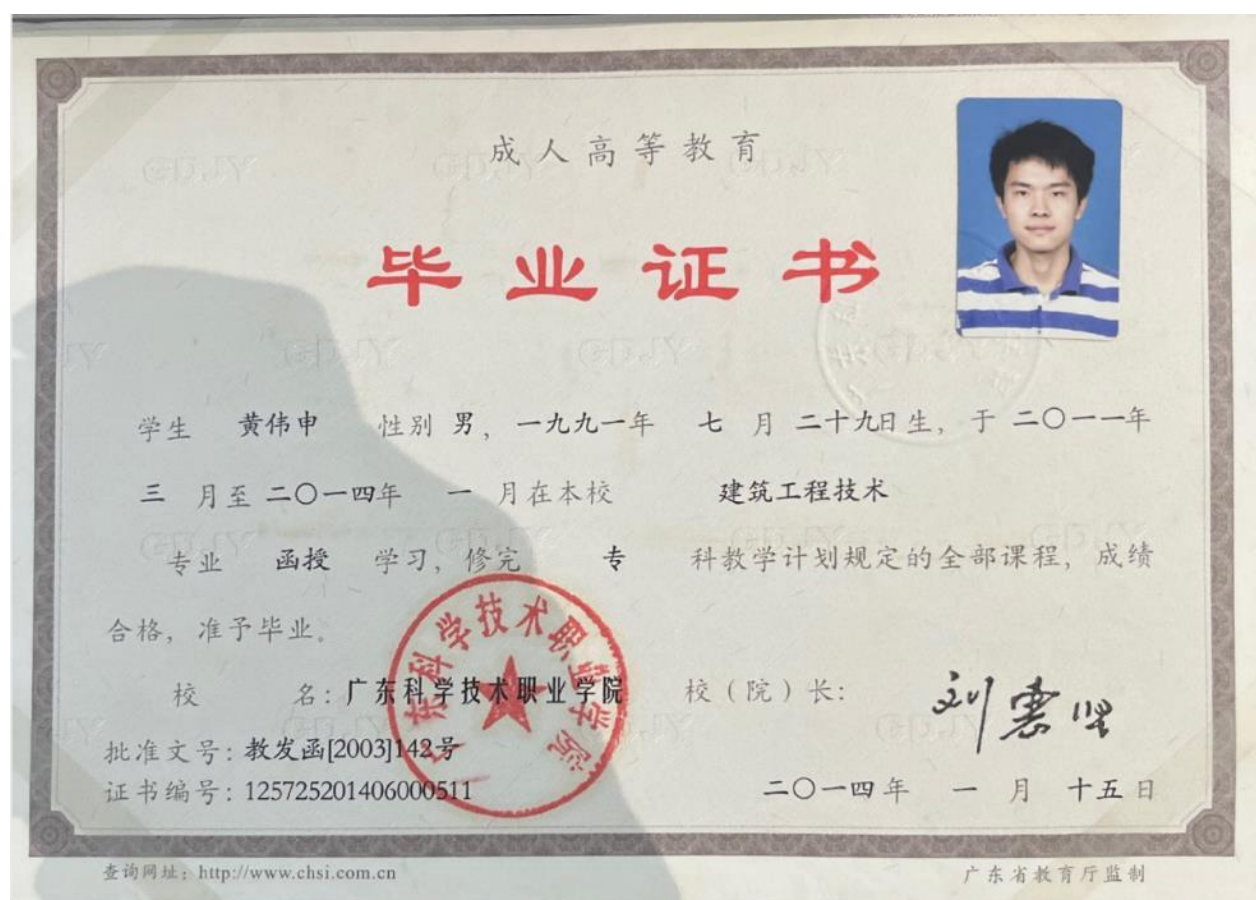 成人高等教育
毕业证书
学生 黄伟申 性别 男, 一九九一年 七 月 二十九日生, 于 二〇一一年
三 月至 二〇一四年 一 月在本校 建筑工程技术
专业 函授 学习, 修完 专 科教学计划规定的全部课程, 成绩
合格, 准予毕业。
校 名: 广东科学技术职业学院 校(院)长: 刘惠坚
批准文号: 教发函[2003]142号
证书编号: 125725201406000511
二〇一四年 一 月 十五日
查询网址: http://www.chsi.com.cn 广东省教育厅监制
广东科学技术职业学院
GDJY